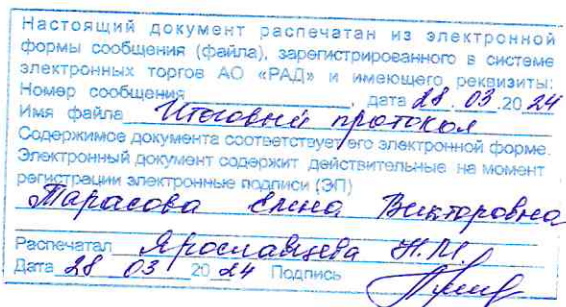 Настоящий документ распечатан из электронной
формы сообщения (файла), зарегистрированного в системе
электронных торгов АО «РАД» и имеющего реквизиты:
Номер сообщения ____________, дата 28.03.2024
Имя файла Итоговый протокол
Содержимое документа соответствует его электронной форме.
Электронный документ содержит действительные на момент
регистрации электронные подписи (ЭП)
Тарасова Елена Викторовна
Распечатал Ярославцева Н.М.
Дата 28 03 2024 Подпись